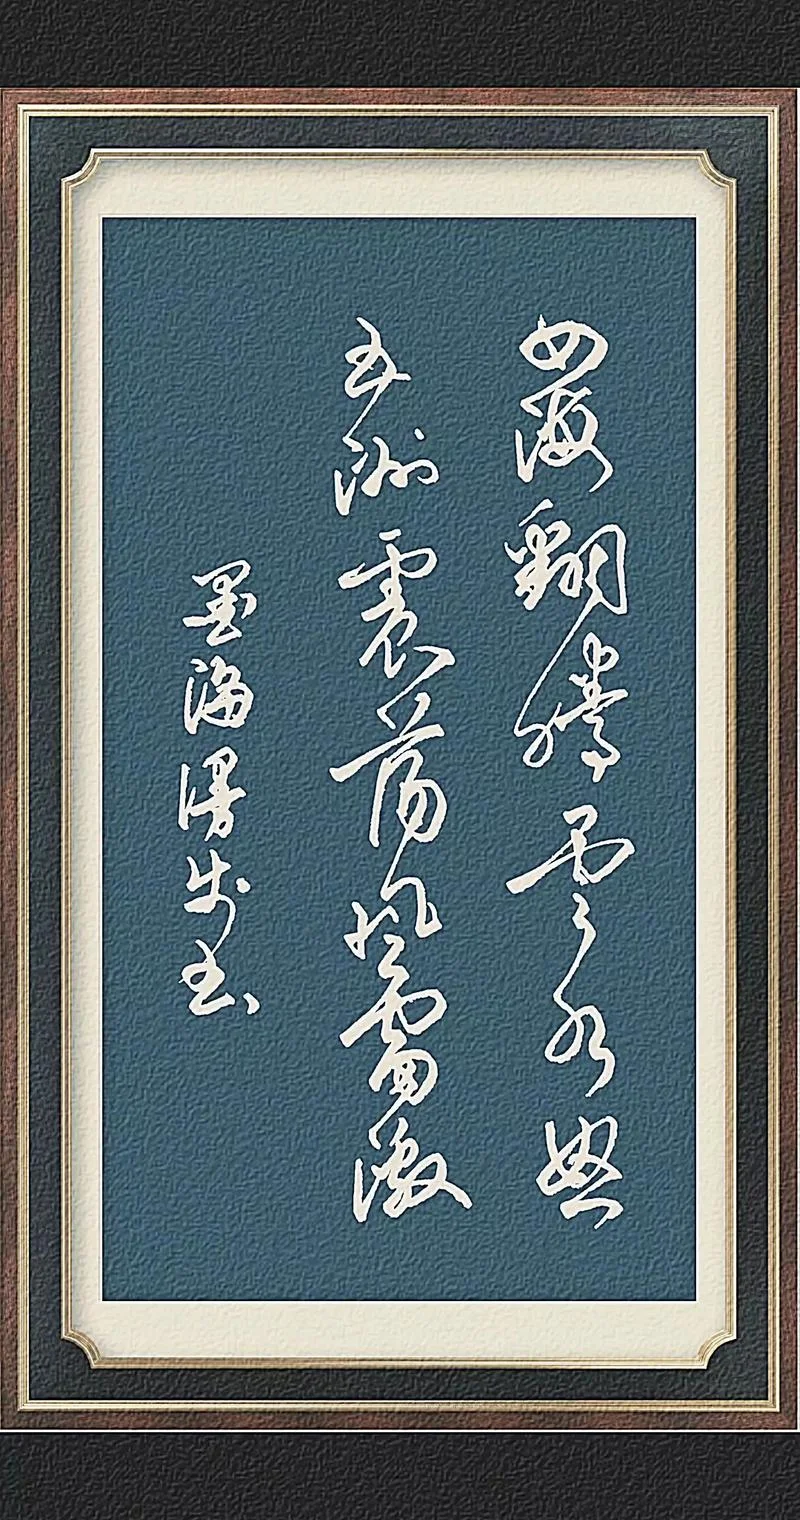 四海翻腾云水怒
五洲震荡风雷激
墨海漫步书